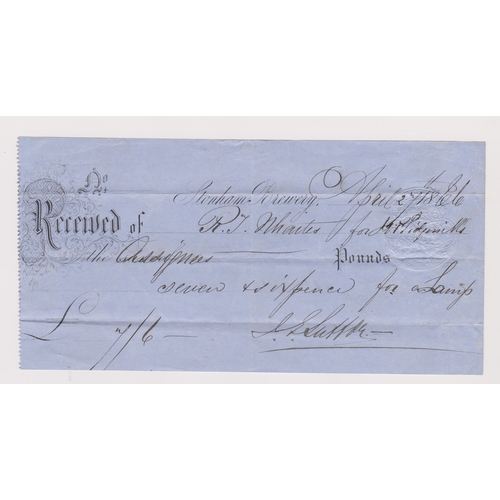 No
Stonham Brewery, April 27th 1866
Received of R. J. Whaites for
the Assignees Pounds
seven & sixpence for a Lamp
£ 7/6 —